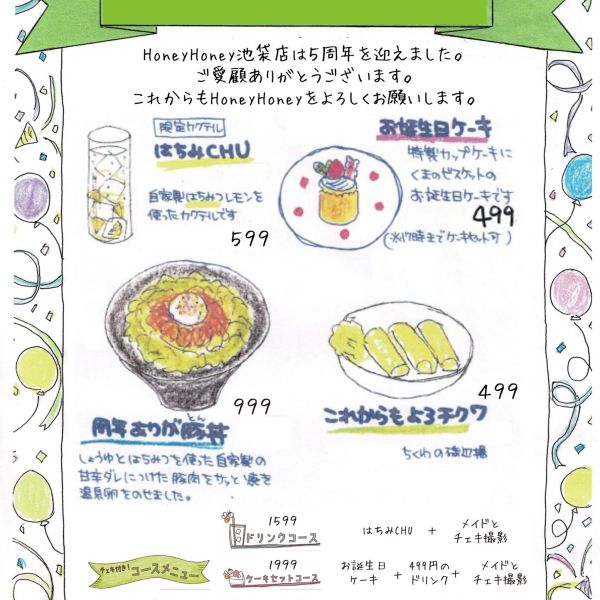 HoneyHoney池袋店は5周年を迎えました。
ご愛顧ありがとうございます。
これからもHoneyHoneyをよろしくお願いします。
限定カクテル
はちみCHU
自家製はちみつレモンを
使ったカクテルです
599
お誕生日ケーキ
特製カップケーキに
くまのビスケットの
お誕生日ケーキです
499
(※17時までケーキセット可)
999
周年ありが豚丼
とん
しょうゆとはちみつを使った自家製の
甘辛ダレにつけた豚肉をサッと焼き
温泉卵をのせました。
499
これからもよろチクワ
ちくわの磯辺揚
チェキ付き!コースメニュー
1599
ドリンクコース
はちみCHU + メイドとチェキ撮影
1999
ケーキセットコース
お誕生日ケーキ + 499円のドリンク + メイドとチェキ撮影